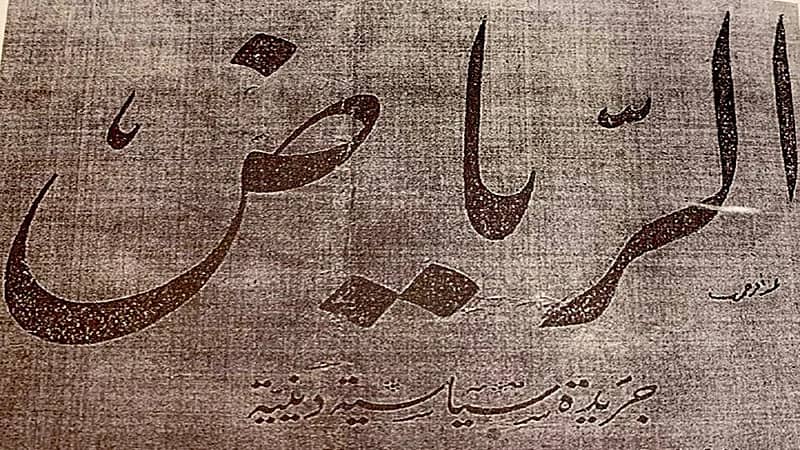 الرّياض
جريدة سياسية دينية